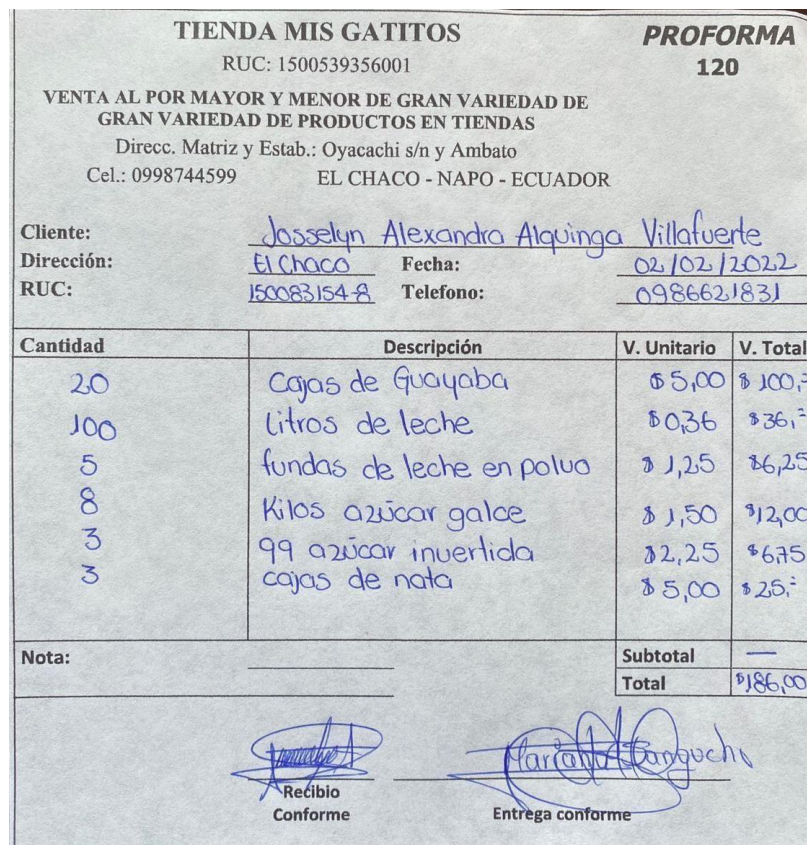 TIENDA MIS GATITOS
PROFORMA
RUC: 1500539356001
120
VENTA AL POR MAYOR Y MENOR DE GRAN VARIEDAD DE
GRAN VARIEDAD DE PRODUCTOS EN TIENDAS
Direcc. Matriz y Estab.: Oyacachi s/n y Ambato
Cel.: 0998744599 EL CHACO - NAPO - ECUADOR
Cliente: Josselyn Alexandra Alquinga Villafuerte
Dirección: El Chaco Fecha: 02/02/2022
RUC: 150083154-8 Telefono: 0986621831
Cantidad Descripción V. Unitario V. Total
20 Cajas de Guayaba $5,00 $100,=
100 litros de leche $0,36 $36,=
5 fundas de leche en polvo $1,25 $6,25
8 Kilos azúcar galce $1,50 $12,00
3 99 azúcar invertida $2,25 $6,75
3 cajas de nata $5,00 $25,=
Nota: Subtotal —
Total $186,00
Recibio
Conforme
Entrega conforme